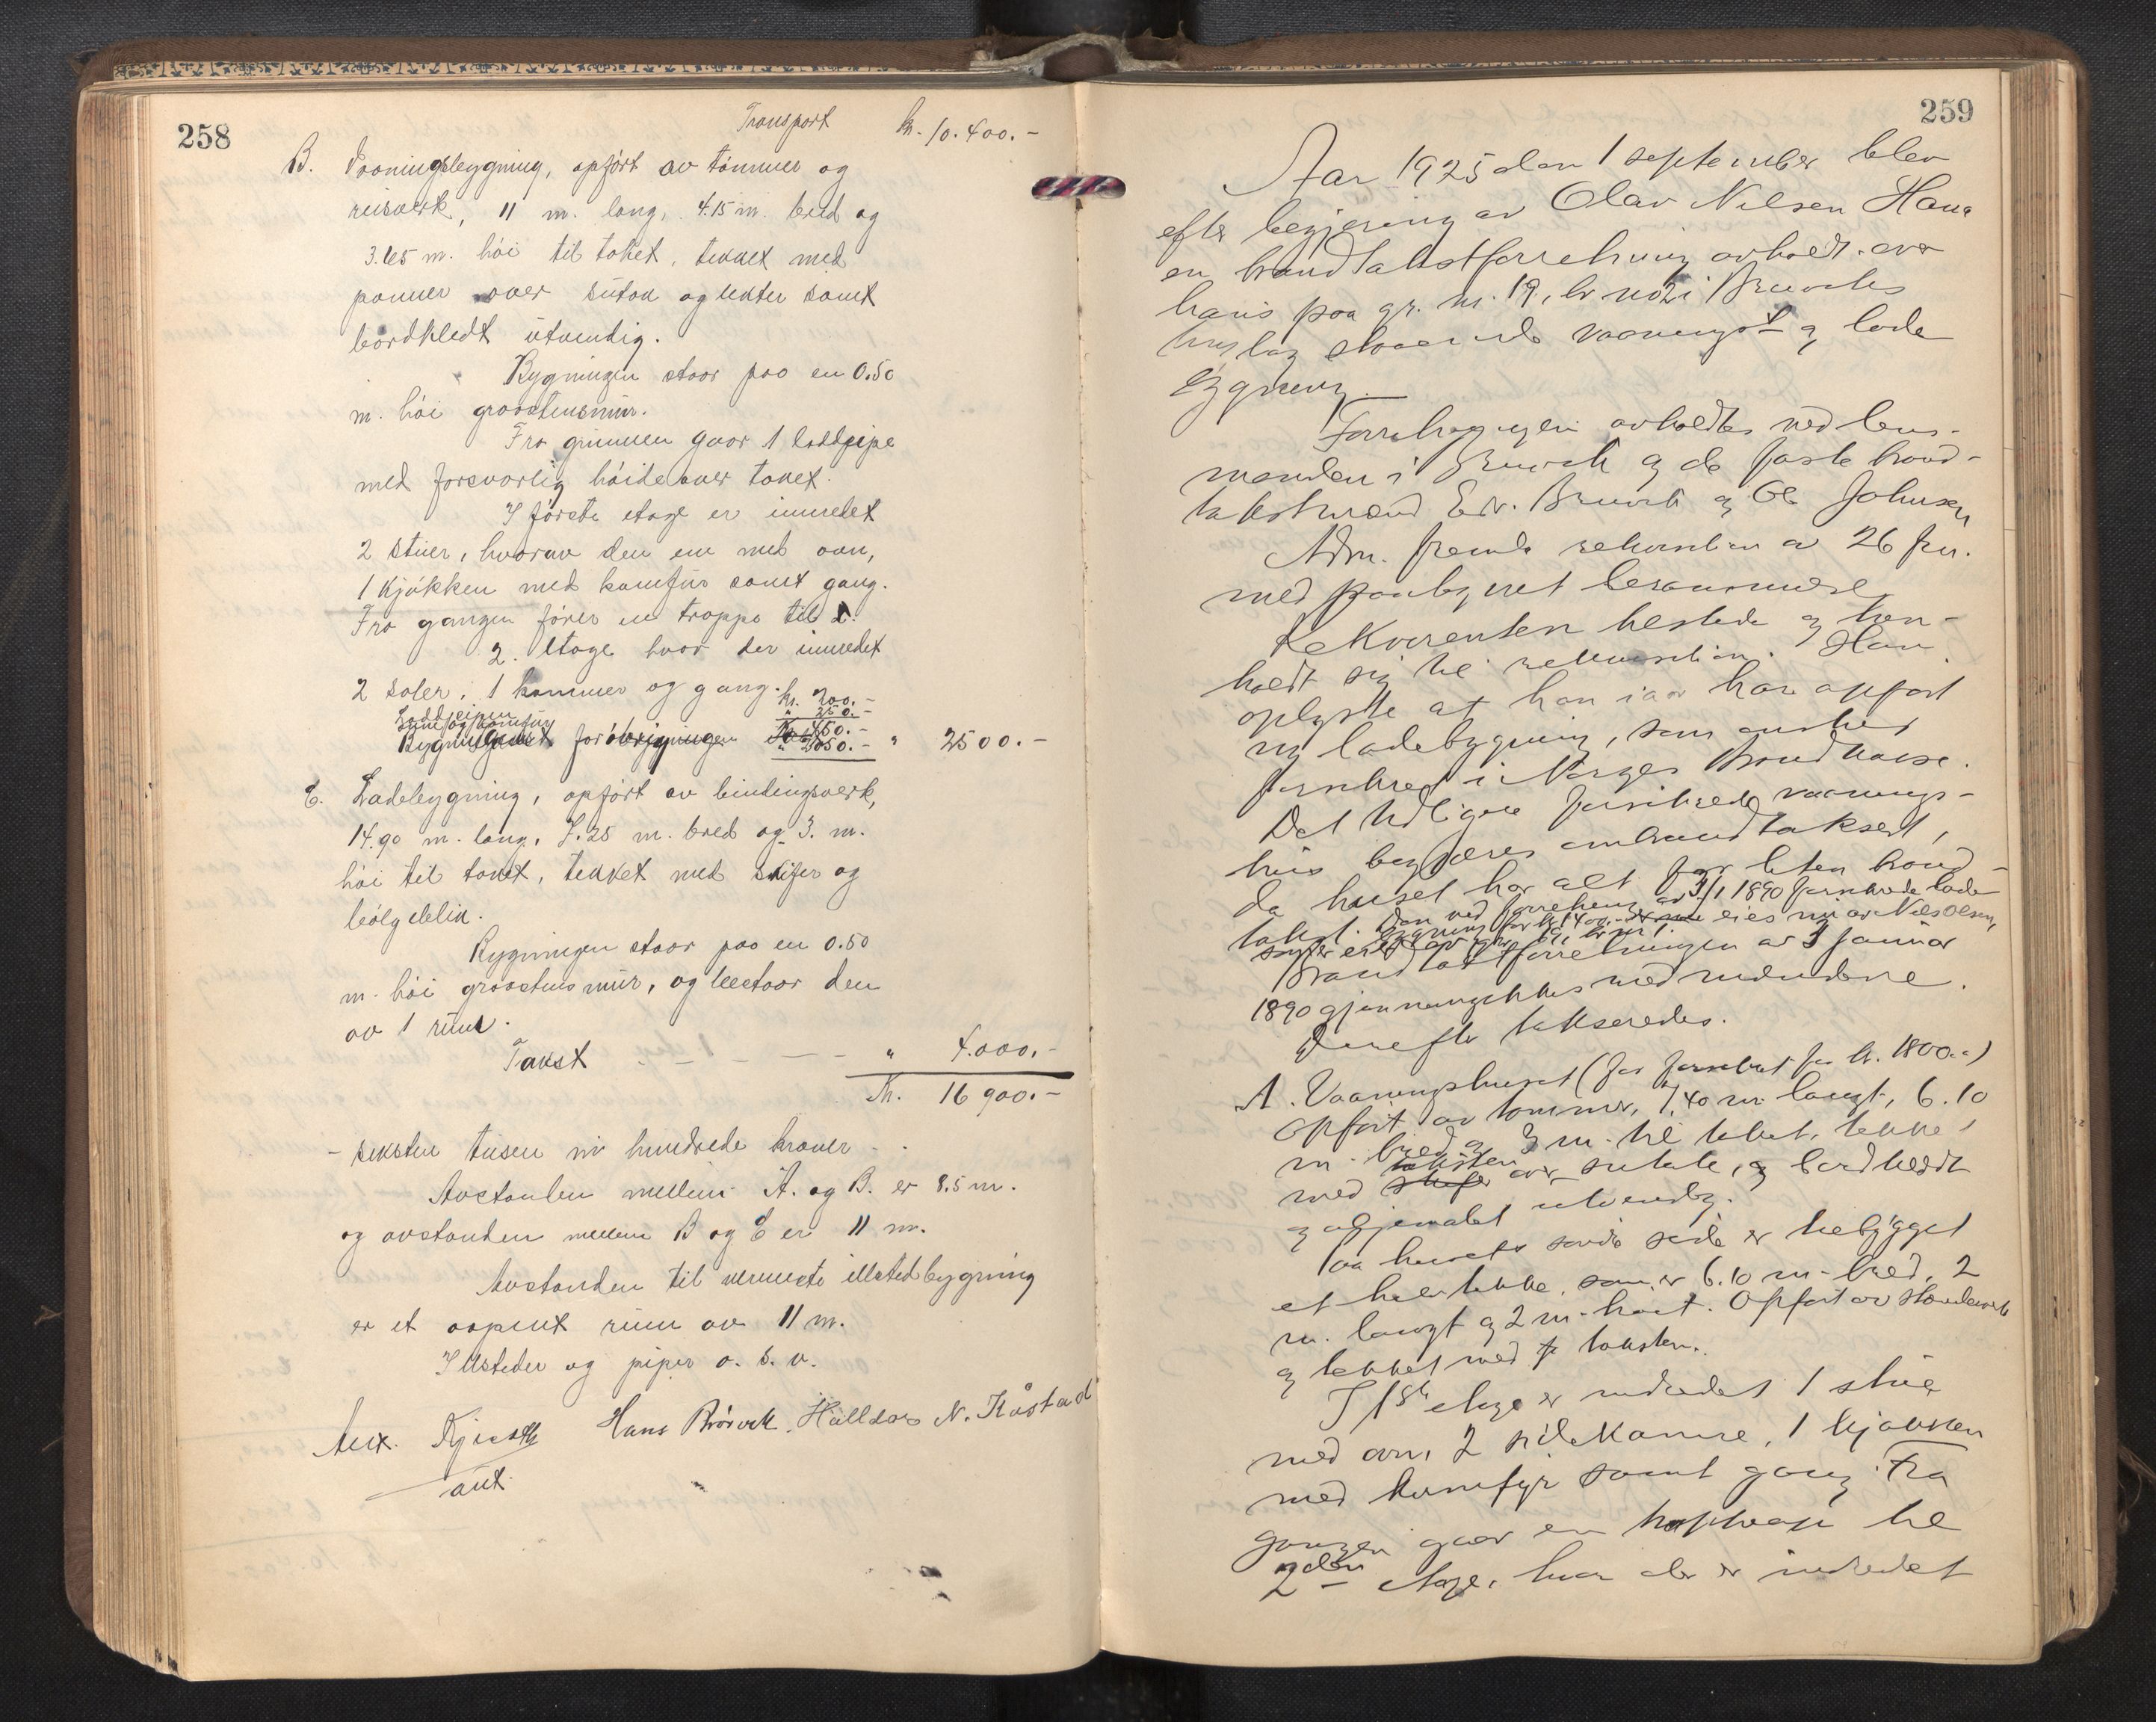 258
Transport kr. 10.400.-
B. Vooningsbygning, opført av tømmer og
reisverk, 11 m. lang, 4.15 m. bred og
3.65 m. høi til taket, tekket med
panner over sutak og lekter samt
bordkledt utvendig.
Bygningen staar paa en 0.50
m. høi graastensmur.
Fra grunnen gaar 1 loddpipe
med forsvarlig høide over taket.
I første etage er innredet
2 stuer, hvorav den ene med ovn,
1 kjøkken med komfur samt gang.
Fra gangen fører en trappe til
2. etage hvor der innredet
2 saler, 1 kammer og gang.
Loddpipen kr. 200.-
Ovn og komfur " 250.-
Kr. 450.-
Bygningen forøvrig " 2050.- " 2500.-
C. Ladebygning, opført av bindingsverk,
14.90 m. lang, 7.25 m. bred og 3. m.
høi til taket, tekket med skifer og
bølgeblik.
Bygningen staar paa en 0.50
m. høi graastensmur, og bestaar den
av 1 rum.
Takst - - - - " 4.000.-
Kr. 16 900.-
- seksten tusen ni hundrede kroner -
Avstanden mellem A. og B. er 8.5 m.
og avstanden mellem B og C er 11 m.
Avstanden til nermeste illstedbygning
er et aapent rum av 11 m.
Illsteder og piper o. s. v.
Alex. Hans Brørvik. Halldor N. Råstad
aut.
259
Aar 1925 den 1 september blev
efter begjæring av Olav Nilsen Hana
en brandtakstforretning avholdt over
hans paa gr. nr. 19, br no 2 i Bruviks
tinglag staaende vaanings- og lade
bygning.
Forretningen avholdtes ved lens-
manden i Bruvik og de faste brand-
takstmænd Edv. Bruvik og Ole Johnsen
Adm. fremla rekvisition av 26 juni
med paategnet berammelse
Rekvirenten møtte og hen-
holdt sig til rekvisitionen. Han
oplyste at han iaar har opført
ny ladebygning, som ønskes
forsikret i Norges Brandkasse.
Det tidligere forsikrede vaanings-
hus begjæres ombrandtaksert,
da huset har alt for liten brand-
takst. Den ved forretning av 3/1 1890 forsikrede lade-
bygning for kr. 400.- eies nu av Nils Olsen,
Brandtakstforretningen av 3 januar
1890 gjennemgikkes med mændene.
Derefter takseredes.
A. Vaaningshuset (før forsikret for kr. 1800.-)
opført av tømmer, 7.40 m. langt, 6.10
m. bred og 3 m. til taket, tekket
med taksten over sutak, og bordklædt
og oljemalet utvendig.
Paa husets søndre side er tilbygget
et halvtække, som er 6.10 m. bred, 2
m. langt og 2 m. høit. Opført av stenderverk
og tekket med taksten.
I 1ste etage er indredet 1 stue
med ovn, 2 sidekamre, 1 kjøkken
med komfyr samt gang. Fra
gangen gaar en trapheap til
2den etage, hvor der er indredet